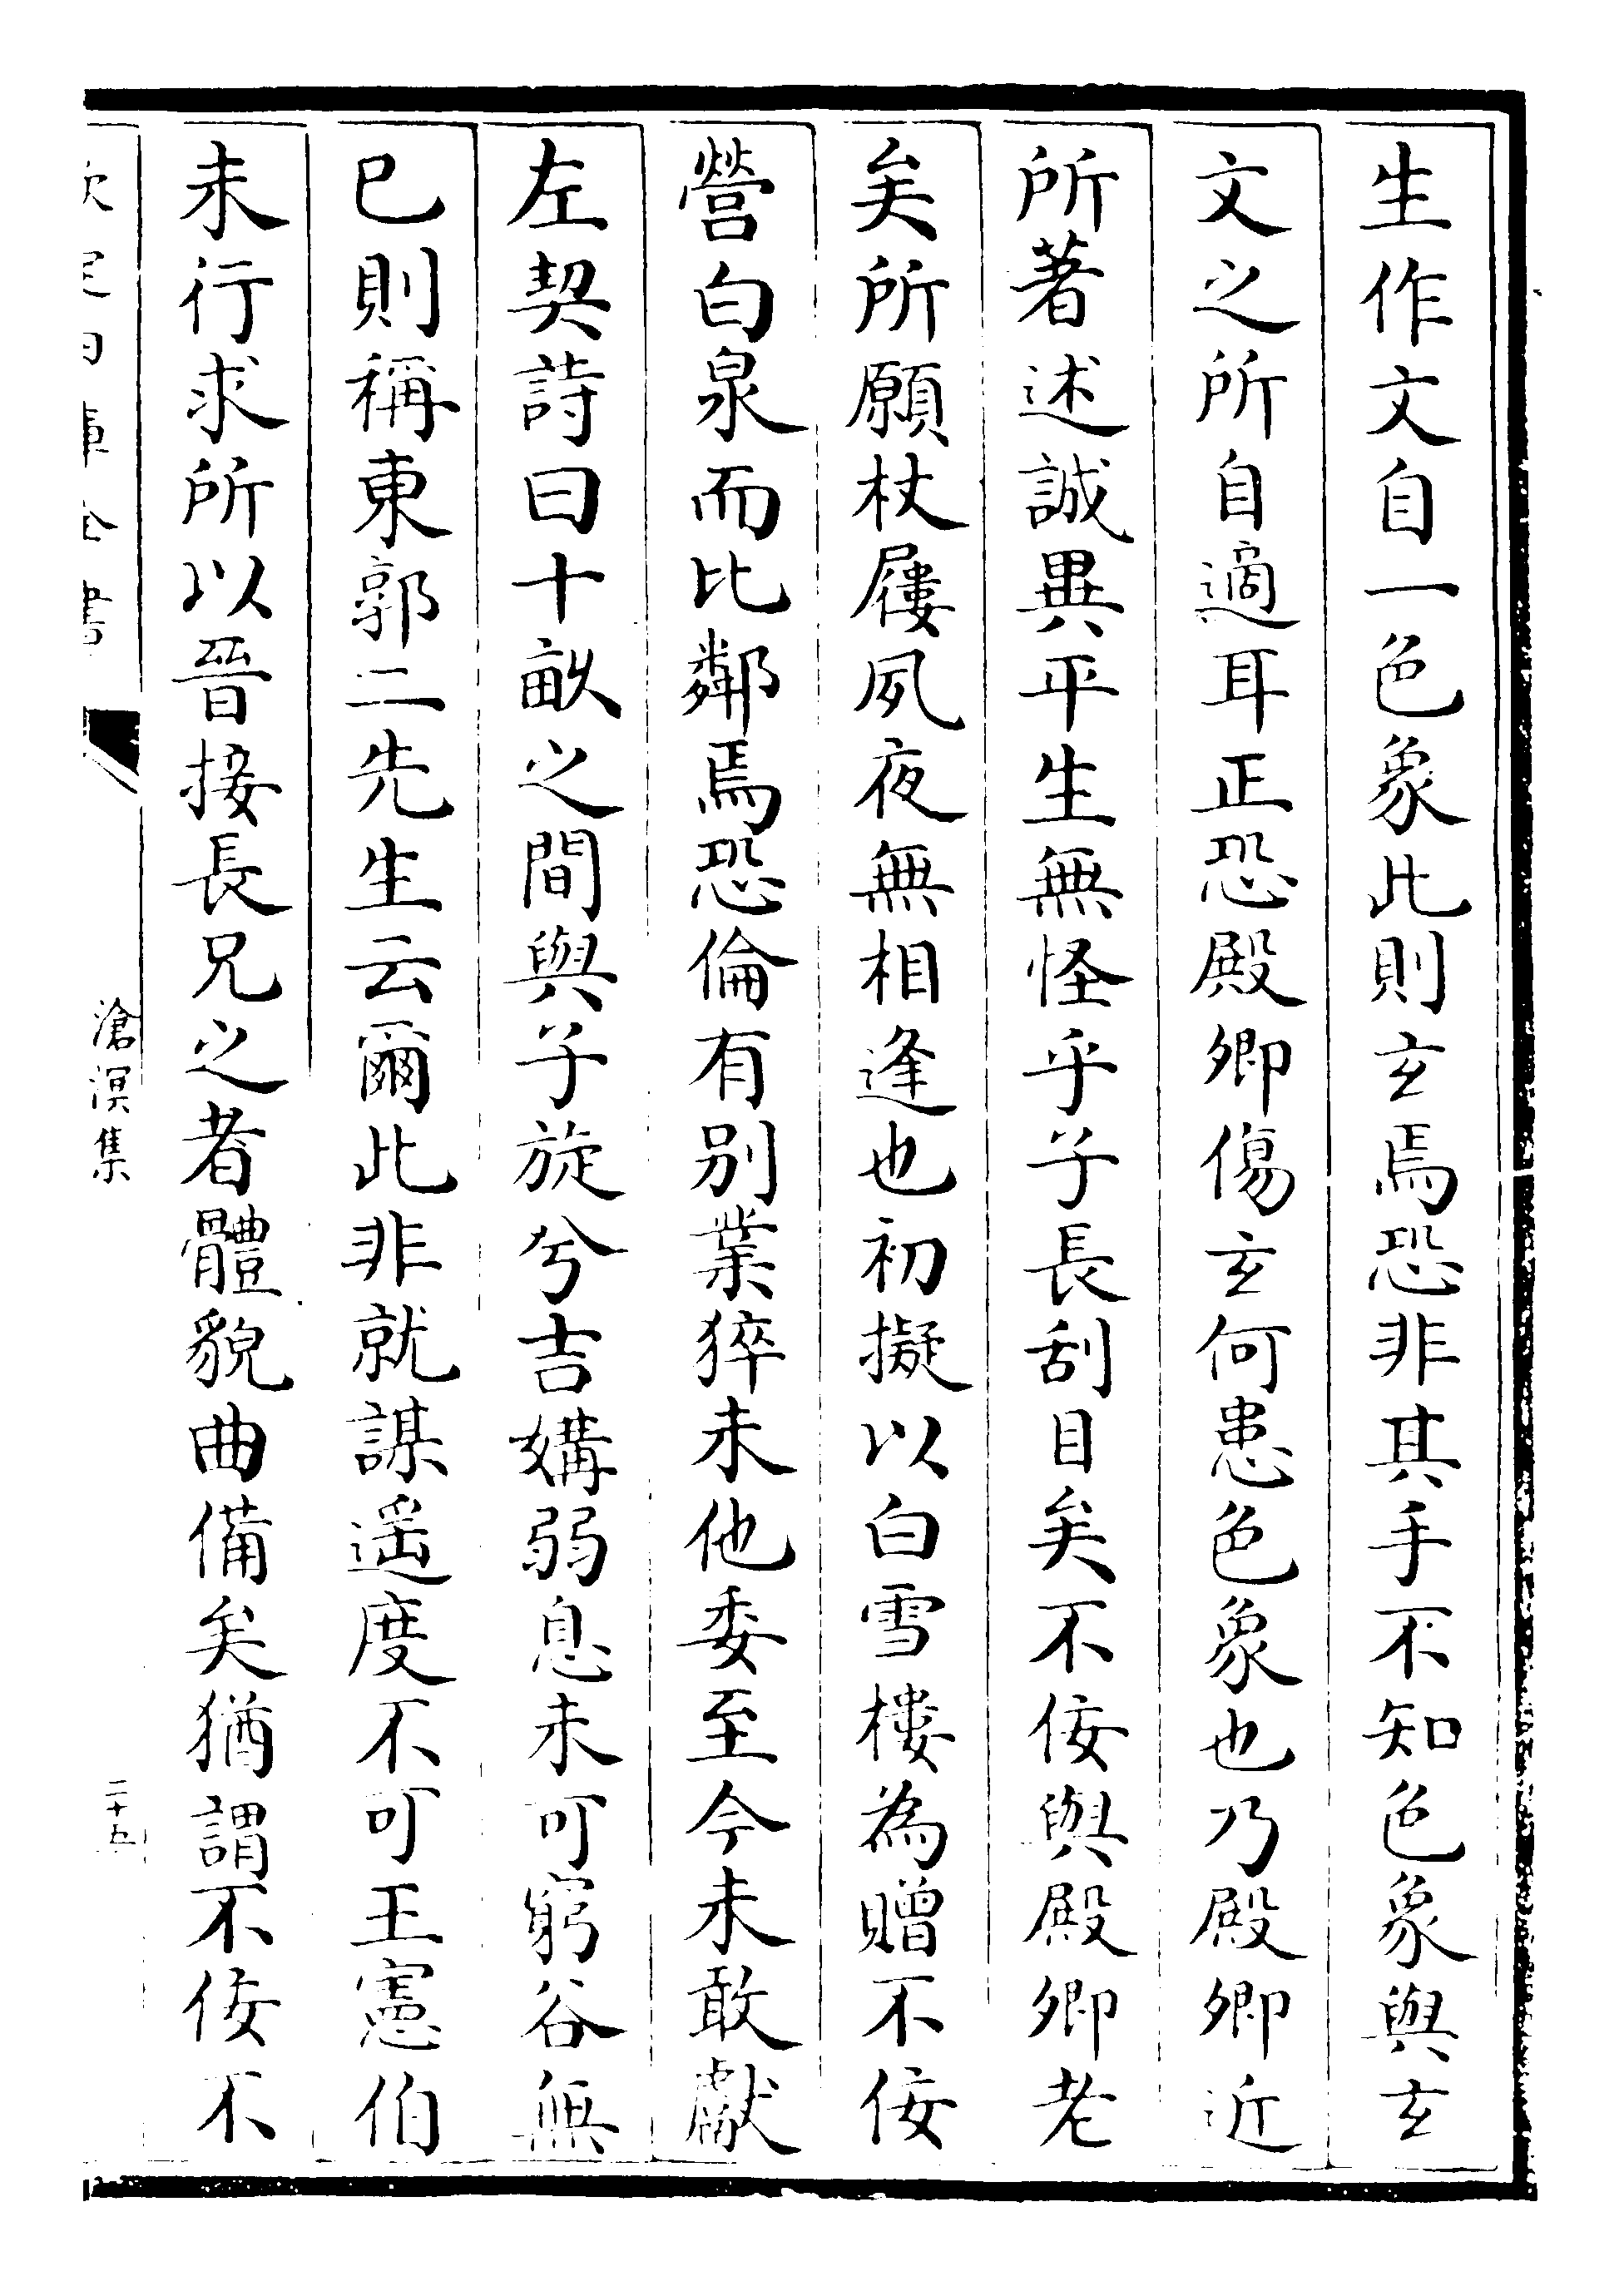 生作文自一色象此則玄焉恐非其手不知色象與玄
文之所自適耳正恐殿卿傷玄何患色象也乃殿卿近
所著述誠異平生無怪乎子長刮目矣不佞與殿卿老
矣所願杖屨夙夜無相逢也初擬以白雪樓為贈不佞
營白泉而比鄰焉恐倫有别業猝未他委至今未敢獻
左契詩曰十畝之間與子旋兮吉媾弱息未可窮谷無
已則稱東郭二先生云爾此非就謀遥度不可王憲伯
未行求所以晉接長兄之者體貌曲備矣猶謂不佞不
欽定四庫全書
滄溟集
二十五